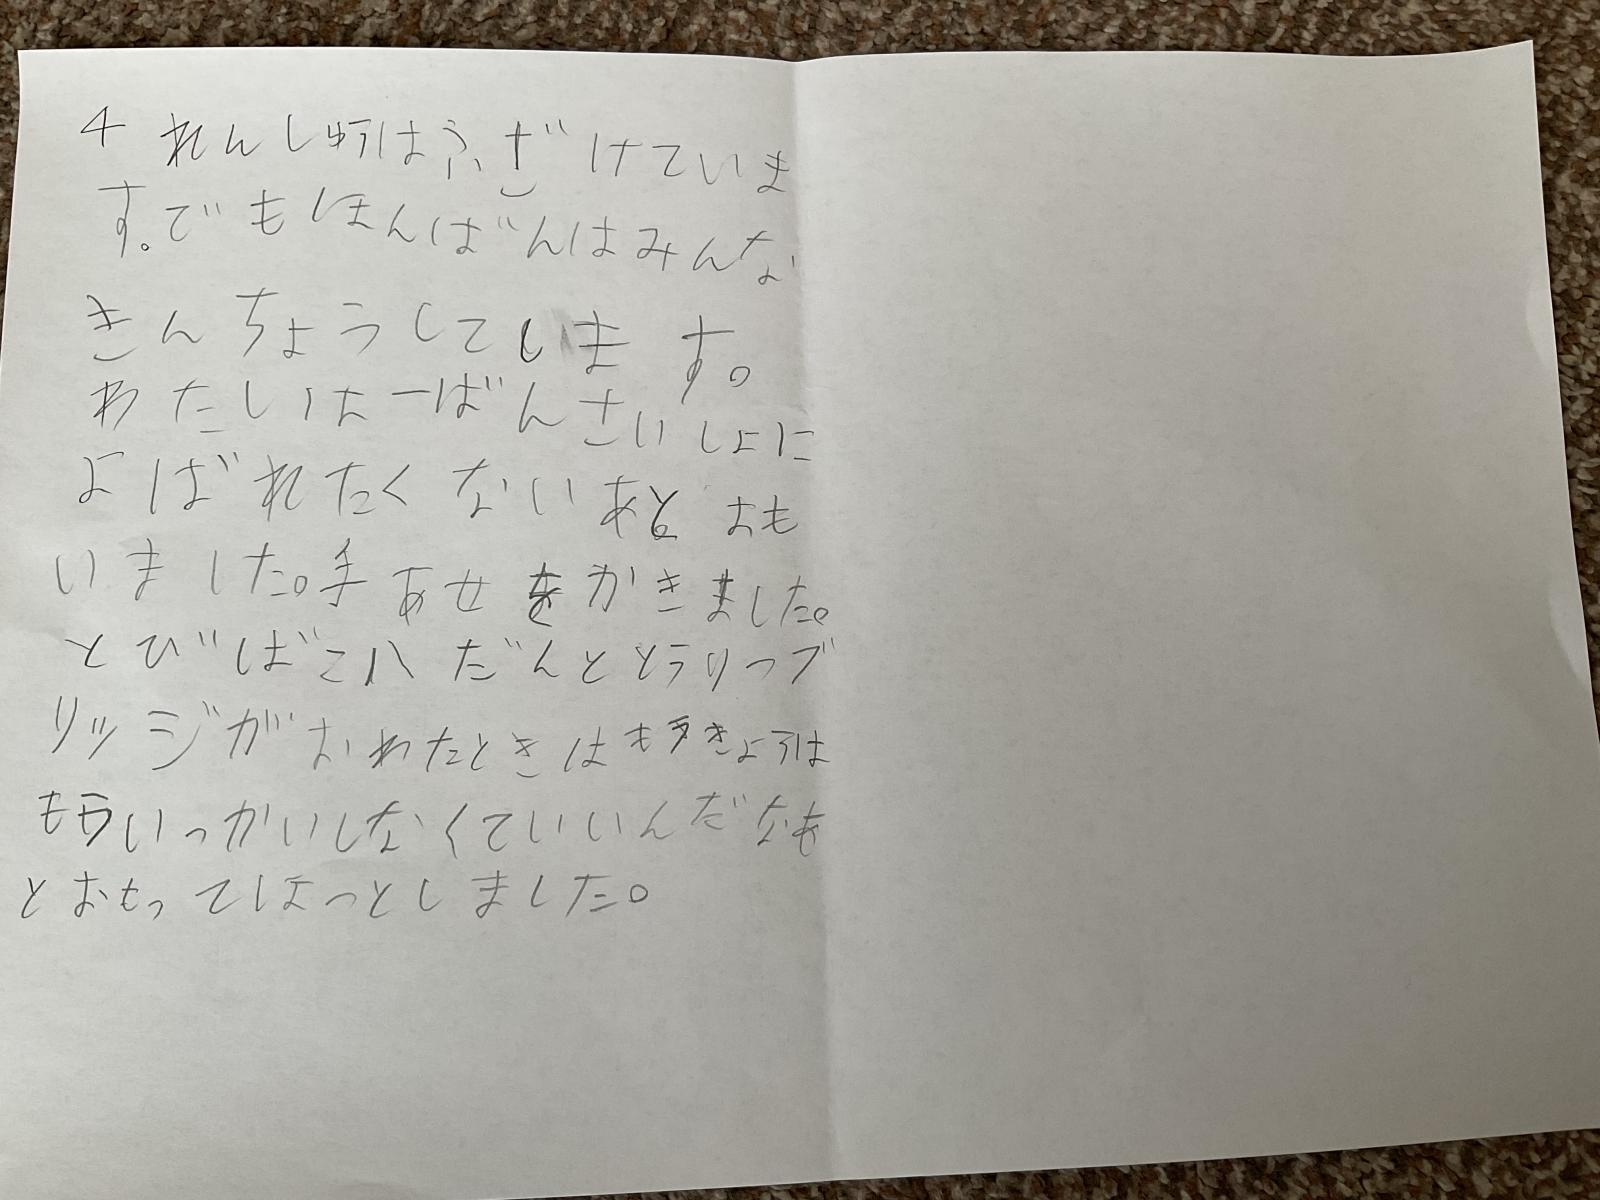 4 れんしゅうはふざけていま
す。でもほんばんはみんな
きんちょうしています。
わたしは一ばんさいしょに
よばれたくないあとおも
いました。手あせをかきました。
とびばこ八だんととうりつブ
リッジがおわたときはもうきょうは
もういっかいしなくていいんだなあ
とおもってほっとしました。